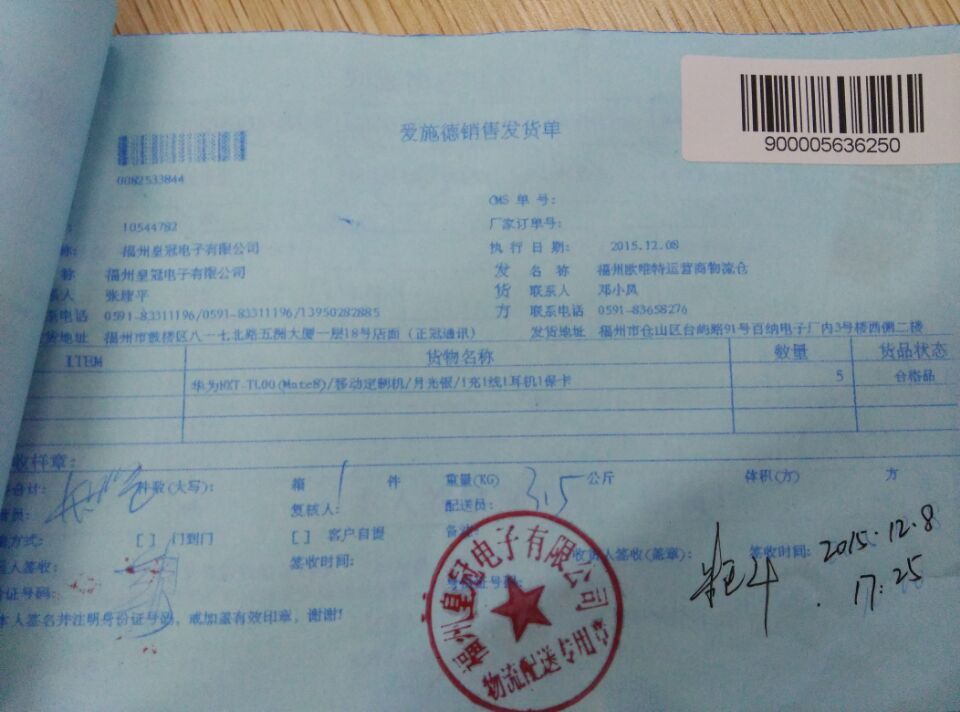 爱施德销售发货单
900005636250
0082533844
CMS 单 号:
10544782
厂家订单号:
称: 福州皇冠电子有限公司
执 行 日 期: 2015.12.08
称 福州皇冠电子有限公司
发 名 称 福州欧唯特运营商物流仓
系人 张建平
货 联系人 邓小凤
系电话 0591-83311196/0591-83311196/13950282885
方 联系电话 0591-83658276
货地址 福州市鼓楼区八一七北路五洲大厦一层18号店面 (正冠通讯)
发货地址 福州市仓山区台屿路91号百纳电子厂内3号楼西侧二楼
ITEM 货物名称 数量 货品状态
华为NXT-TL00(Mate8)/移动定制机/月光银/1充1线1耳机1保卡 5 合格品
收样章:
合计: 件数(大写): 箱 1 件 重量(KG) 3.5 公斤 体积(方) 方
管员: 复核人: 配送员:
方式: [ ] 门到门 [ ] 客户自提 备注:
人签收: 签收时间: 收货人签收(盖章): 签收时间: 2015.12.8
17:25
证号码: 身份证号码:
本人签名并注明身份证号码, 或加盖有效印章, 谢谢!
福州皇冠电子有限公司
物流配送专用章